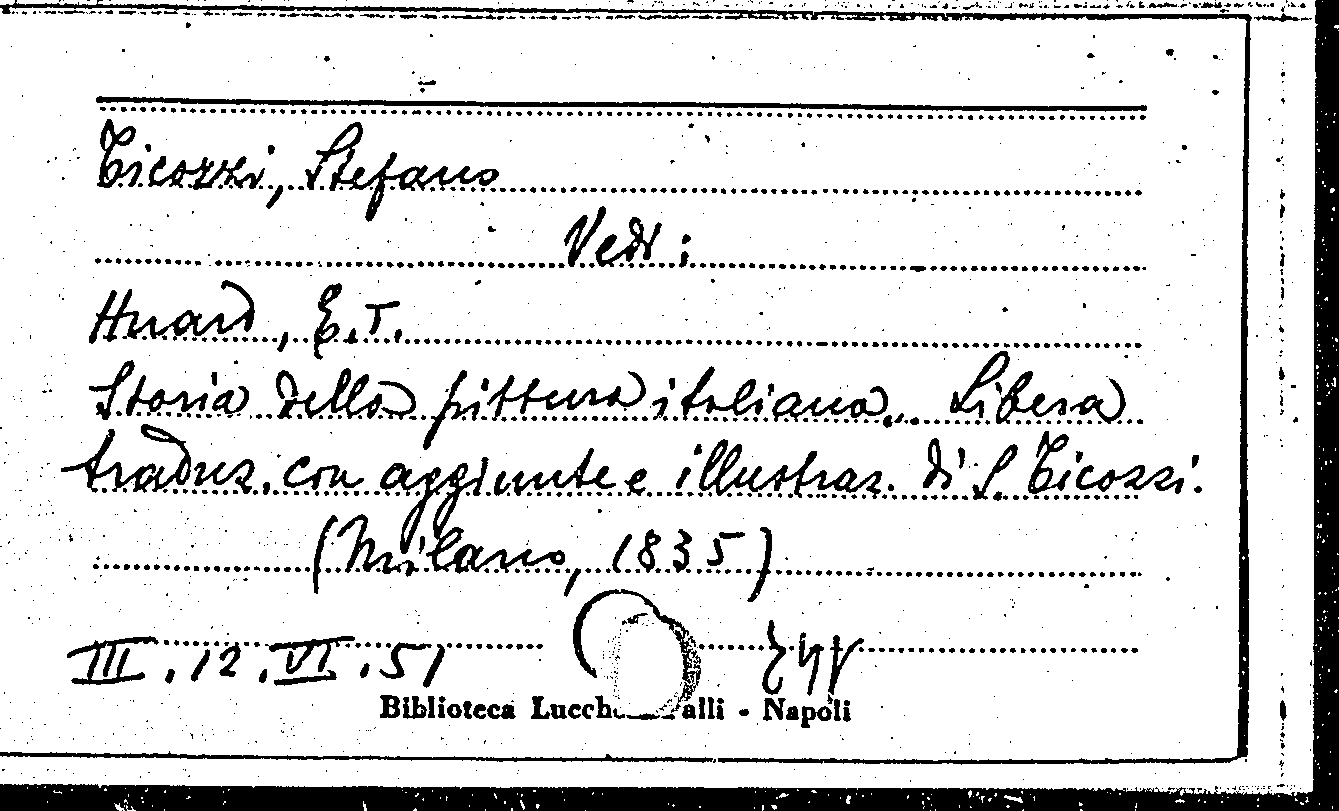 Ticozzi, Stefano
Vedi:
Huard, E.T.
Storia della pittura italiana... Libera
traduz. con aggiunte e illustraz. di S. Ticozzi.
(Milano, 1835)
III.12.VI.51
Biblioteca Lucch alli - Napoli